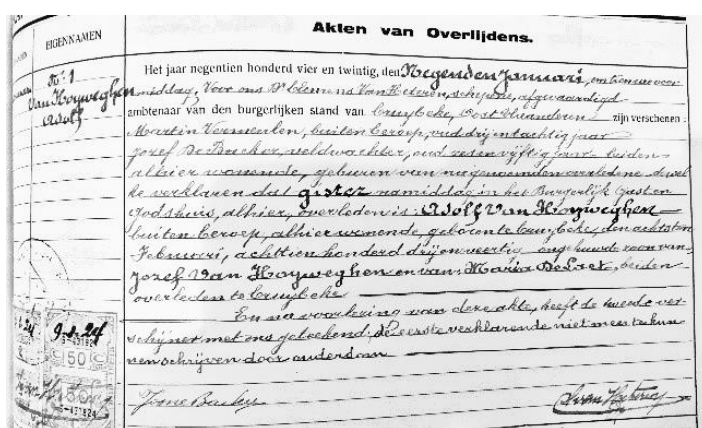 Akten van Overlijdens.
EIGENNAMEN
No. 1
Van Hoyweghen
Adolf
Het jaar negentien honderd vier en twintig, den Negenden Januari, om tien ure voor
middag, Voor ons Dr Clemens Van Heteren, schepene, afgevaardigd
ambtenaar van den burgerlijken stand van Cruybeke, Oost Vlaanderen zijn verschenen:
Martin Vermeulen, buiten beroep, oud drij en tachtig jaar
Jozef De Backer, veldwachter, oud zes en vijftig jaar beiden
alhier wonende, geburen van nagenoemden overledene dewel
ke verklaren dat gister namiddag in het Burgerlijk Gast en
Godshuis, alhier, overleden is: Adolf Van Hoyweghen
buiten beroep, alhier wonende, geboren te Cruybeke, den achtsten
Februari, achttien honderd drij en veertig ongehuwd zoon van
Jozef Van Hoyweghen en van Maria De Laet, beiden
overleden te Cruybeke
En na voorlezing van deze akte, heeft de tweede ver
schijner met ons geteekend. De eerste verklarende niet meer te kun
nen schrijven door ouderdom
9-1-24
50